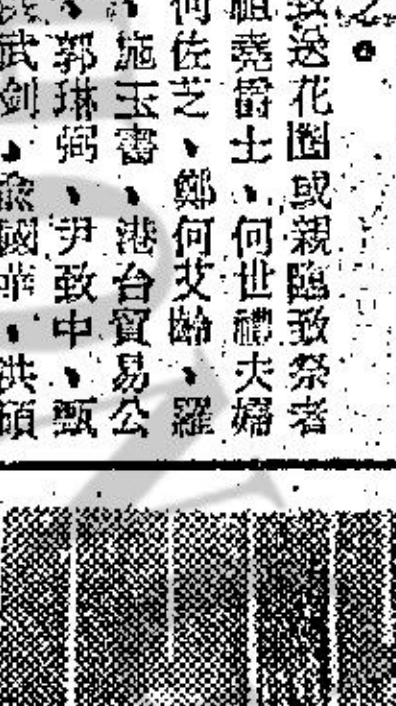 之。
致送花圈或親臨致祭者
祖堯爵士、何世禮夫婦
何佐芝、鄭何艾齡、羅
、施玉書、港台貿易公
、郭琳弼、尹致中、甄
武劍、兪國華、洪